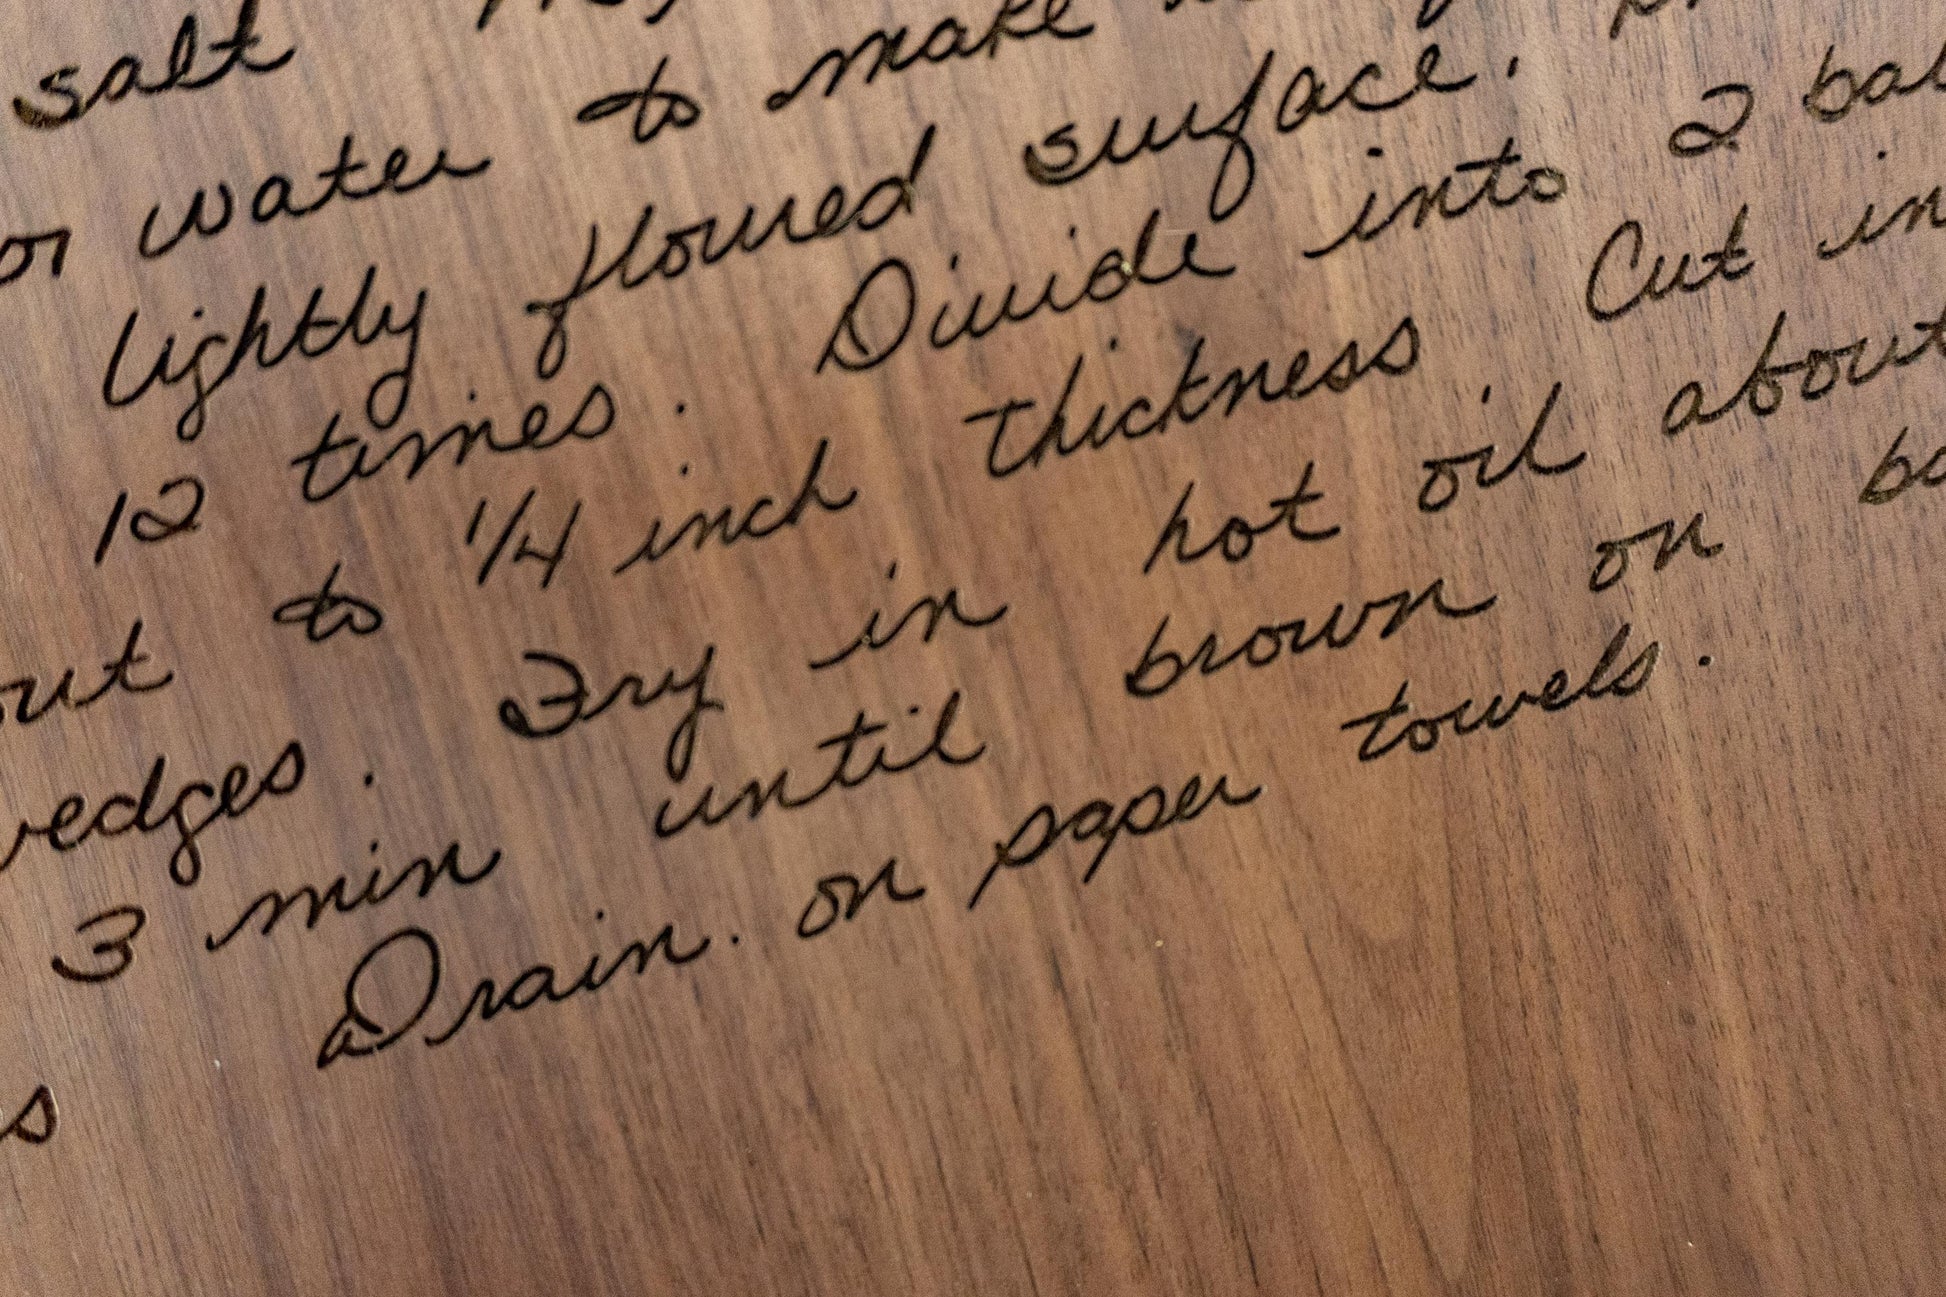 salt
or water to make
lightly floured surface.
12 times. Divide into 2
to 1/4 inch thickness Cut in
Fry in hot oil about
3 min until brown on
Drain. on paper towels.